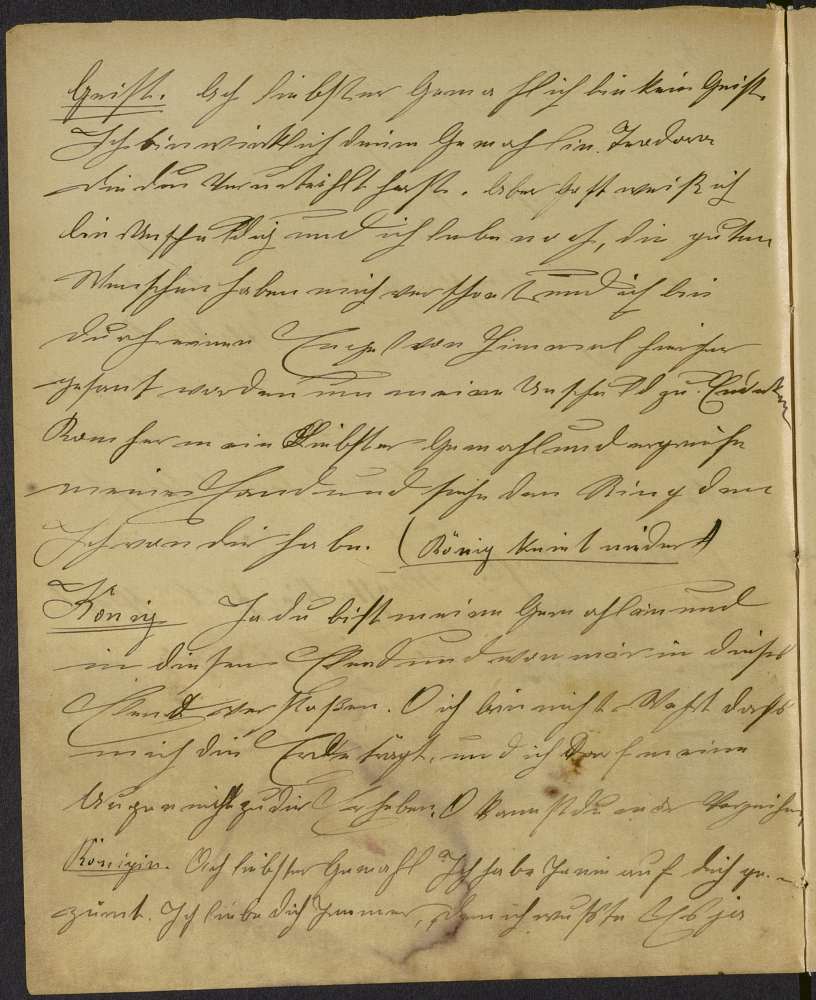 Geist. Ach liebster Gemahl ich bin kein Geist
Ich bin wirklich deine Gemahlin Teodora
die du verurteihlt hast. Aber Gott weiß ich
bin Unschuldig und ich lebe noch, die guten
Menschen haben mich verschont und ich bin
durch einen Engel von Himmel hieher
gesant worden um meine Unschuld zu Endecken
Kom her mein Liebster Gemahl und ergreife
meine Hand und siehe den Ring den
Ich von dir habe. (König kniet nieder)
König Ja du bist meine Gemahlin und
in diesen Elend und von mir in dieses
Elend verstoßen. O ich bin nicht Wehrt daß
mich die Erde trägt, und ich Darf meine
Augen nicht zu dir Erheben. O kannst du mir Verzeihen
Königin. Ach liebster Gemahl Ich habe Ja nie auf dich ge-
zürnt. Ich liebe dich Immer, denn ich wußte Es ja